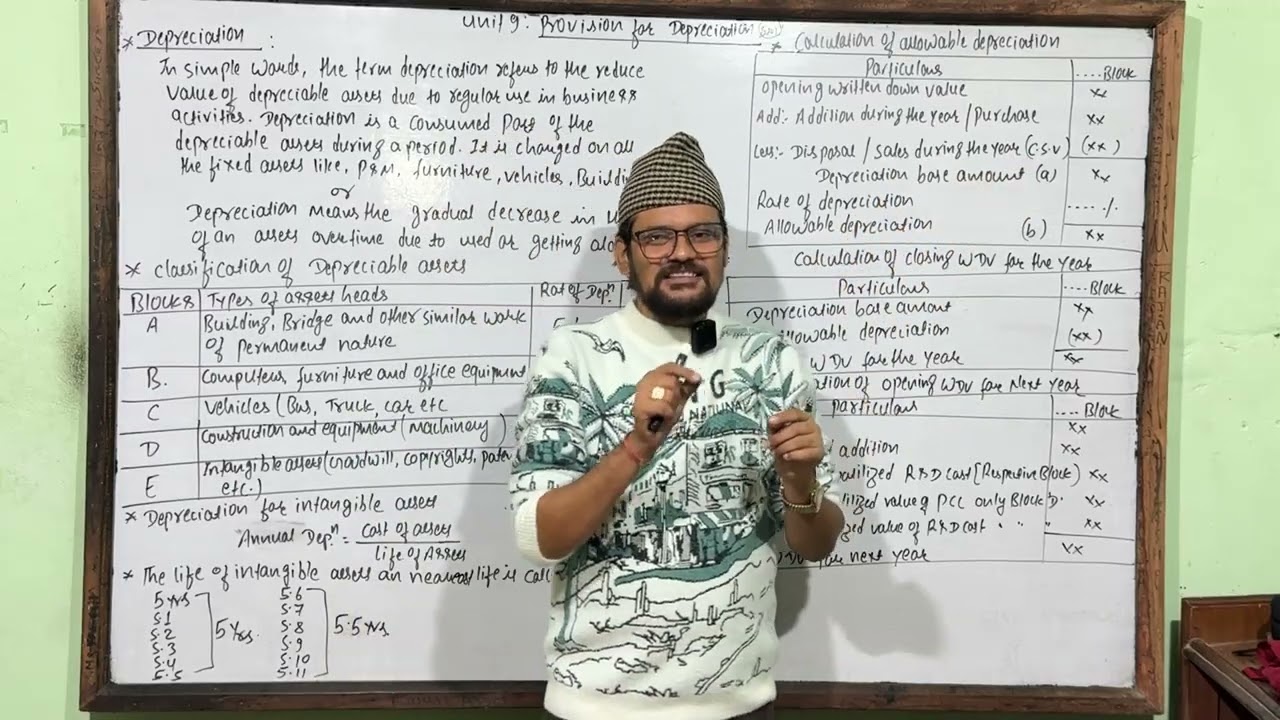 Unit 9: Provision for Depreciation
* Depreciation :
In simple words, the term depreciation refers to the reduce
value of depreciable assets due to regular use in business
activities. Depreciation is a consumed part of the
depreciable assets during a period. It is charged on all
the fixed assets like, P&M, furniture, vehicles, Buildin
or
Depreciation means the gradual decrease in
of an assets overtime due to used or getting old
* Classification of Depreciable assets
Blocks Types of assets heads Rate of Depn.
A Building, Bridge and other similar work
of permanent nature
B. Computers, furniture and office equipment
C Vehicles (Bus, Truck, car etc
D Construction and equipment (machinery)
E Intangible assets (Goodwill, copyrights, paten
etc.)
* Depreciation for intangible asset
Annual Depn = Cost of assets
life of Assets
* The life of intangible assets an nearest life is cal
5 yrs
5.1
5.2
5.3
5.4
5.5
5 Yrs.
5.6
5.7
5.8
5.9
5.10
5.11
5.5 yrs
* Calculation of allowable depreciation
Particulars ....Block
Opening written down value xx
Add:- Addition during the year / Purchase xx
Less:- Disposal / Sales during the year (C.S.V) (xx)
Depreciation base amount (a) xx
Rate of depreciation ...../.
Allowable depreciation (b) xx
Calculation of closing WDV for the year
Particulars ....Block
Depreciation base amount xx
llowable depreciation (xx)
WDV for the year xx
ation of opening WDV for Next year
particulars .... Block
xx
d addition xx
R&D cost [Respective Block] xx
lized value of PCC only Block D. xx
zed value of R&D cost " " " xx
for next year xx
G